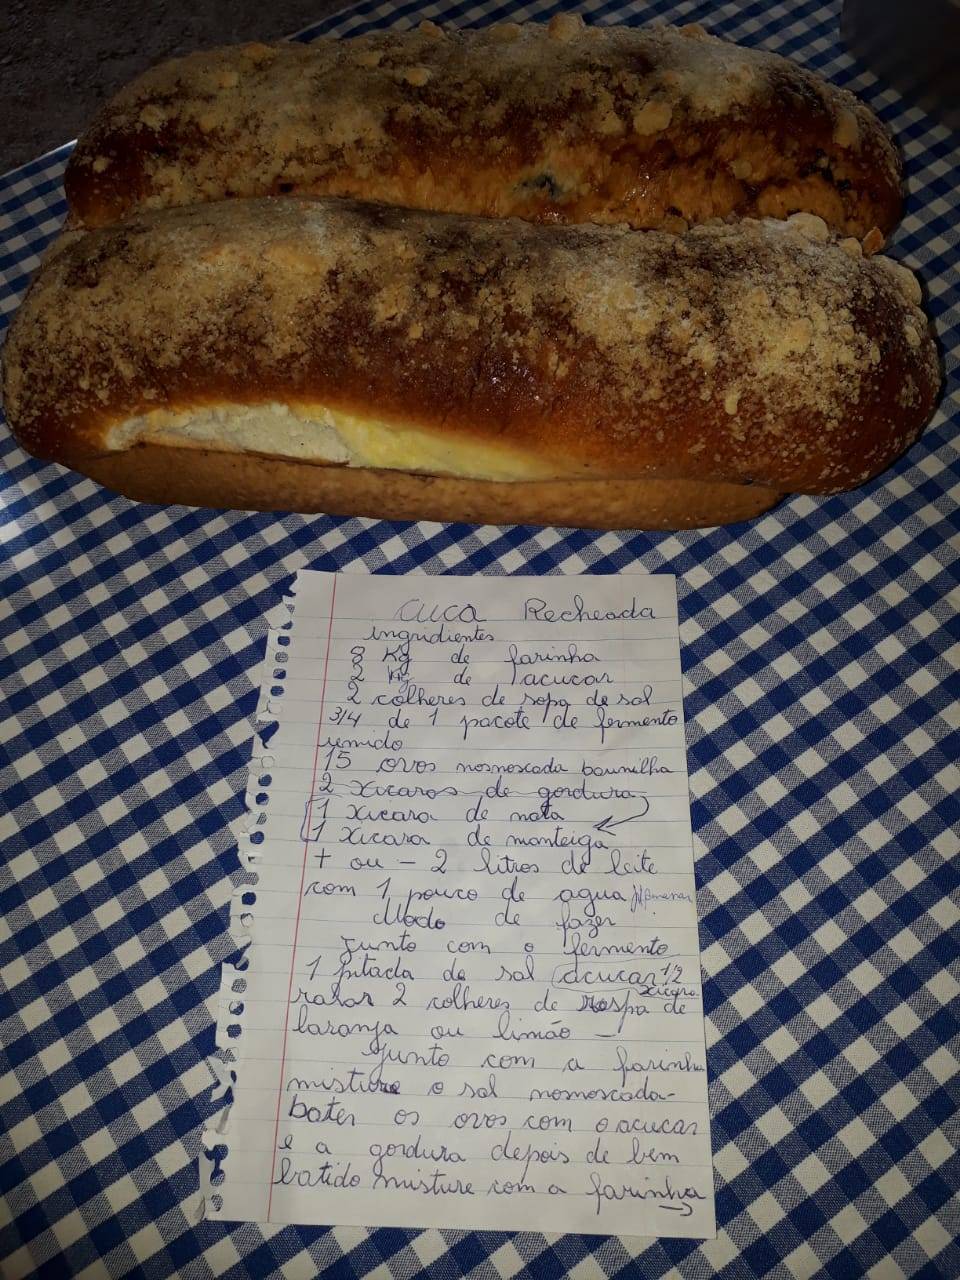 Cuca Recheada
ingridientes
8 Kg de farinha
2 Kg de acucar
2 colheres de sopa de sal
3/4 de 1 pacote de fermento
umido
15 ovos nosmoscada baunilha
2 xicaras de gordura
1 xicara de nata
1 xicara de manteiga
+ ou - 2 litros de leite
com 1 pouco de agua
Modo de fazer
Junto com o fermento
1 pitada de sal acucar 1/2
xicara
ralar 2 colheres de raspa de
laranja ou limão -
Junto com a farinha
misture o sal nosmoscada-
bater os ovos com o acucar
e a gordura depois de bem
batido misture com a farinha
→